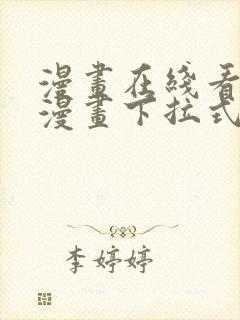 漫畫在綫看
漫畫下拉式
李婷婷